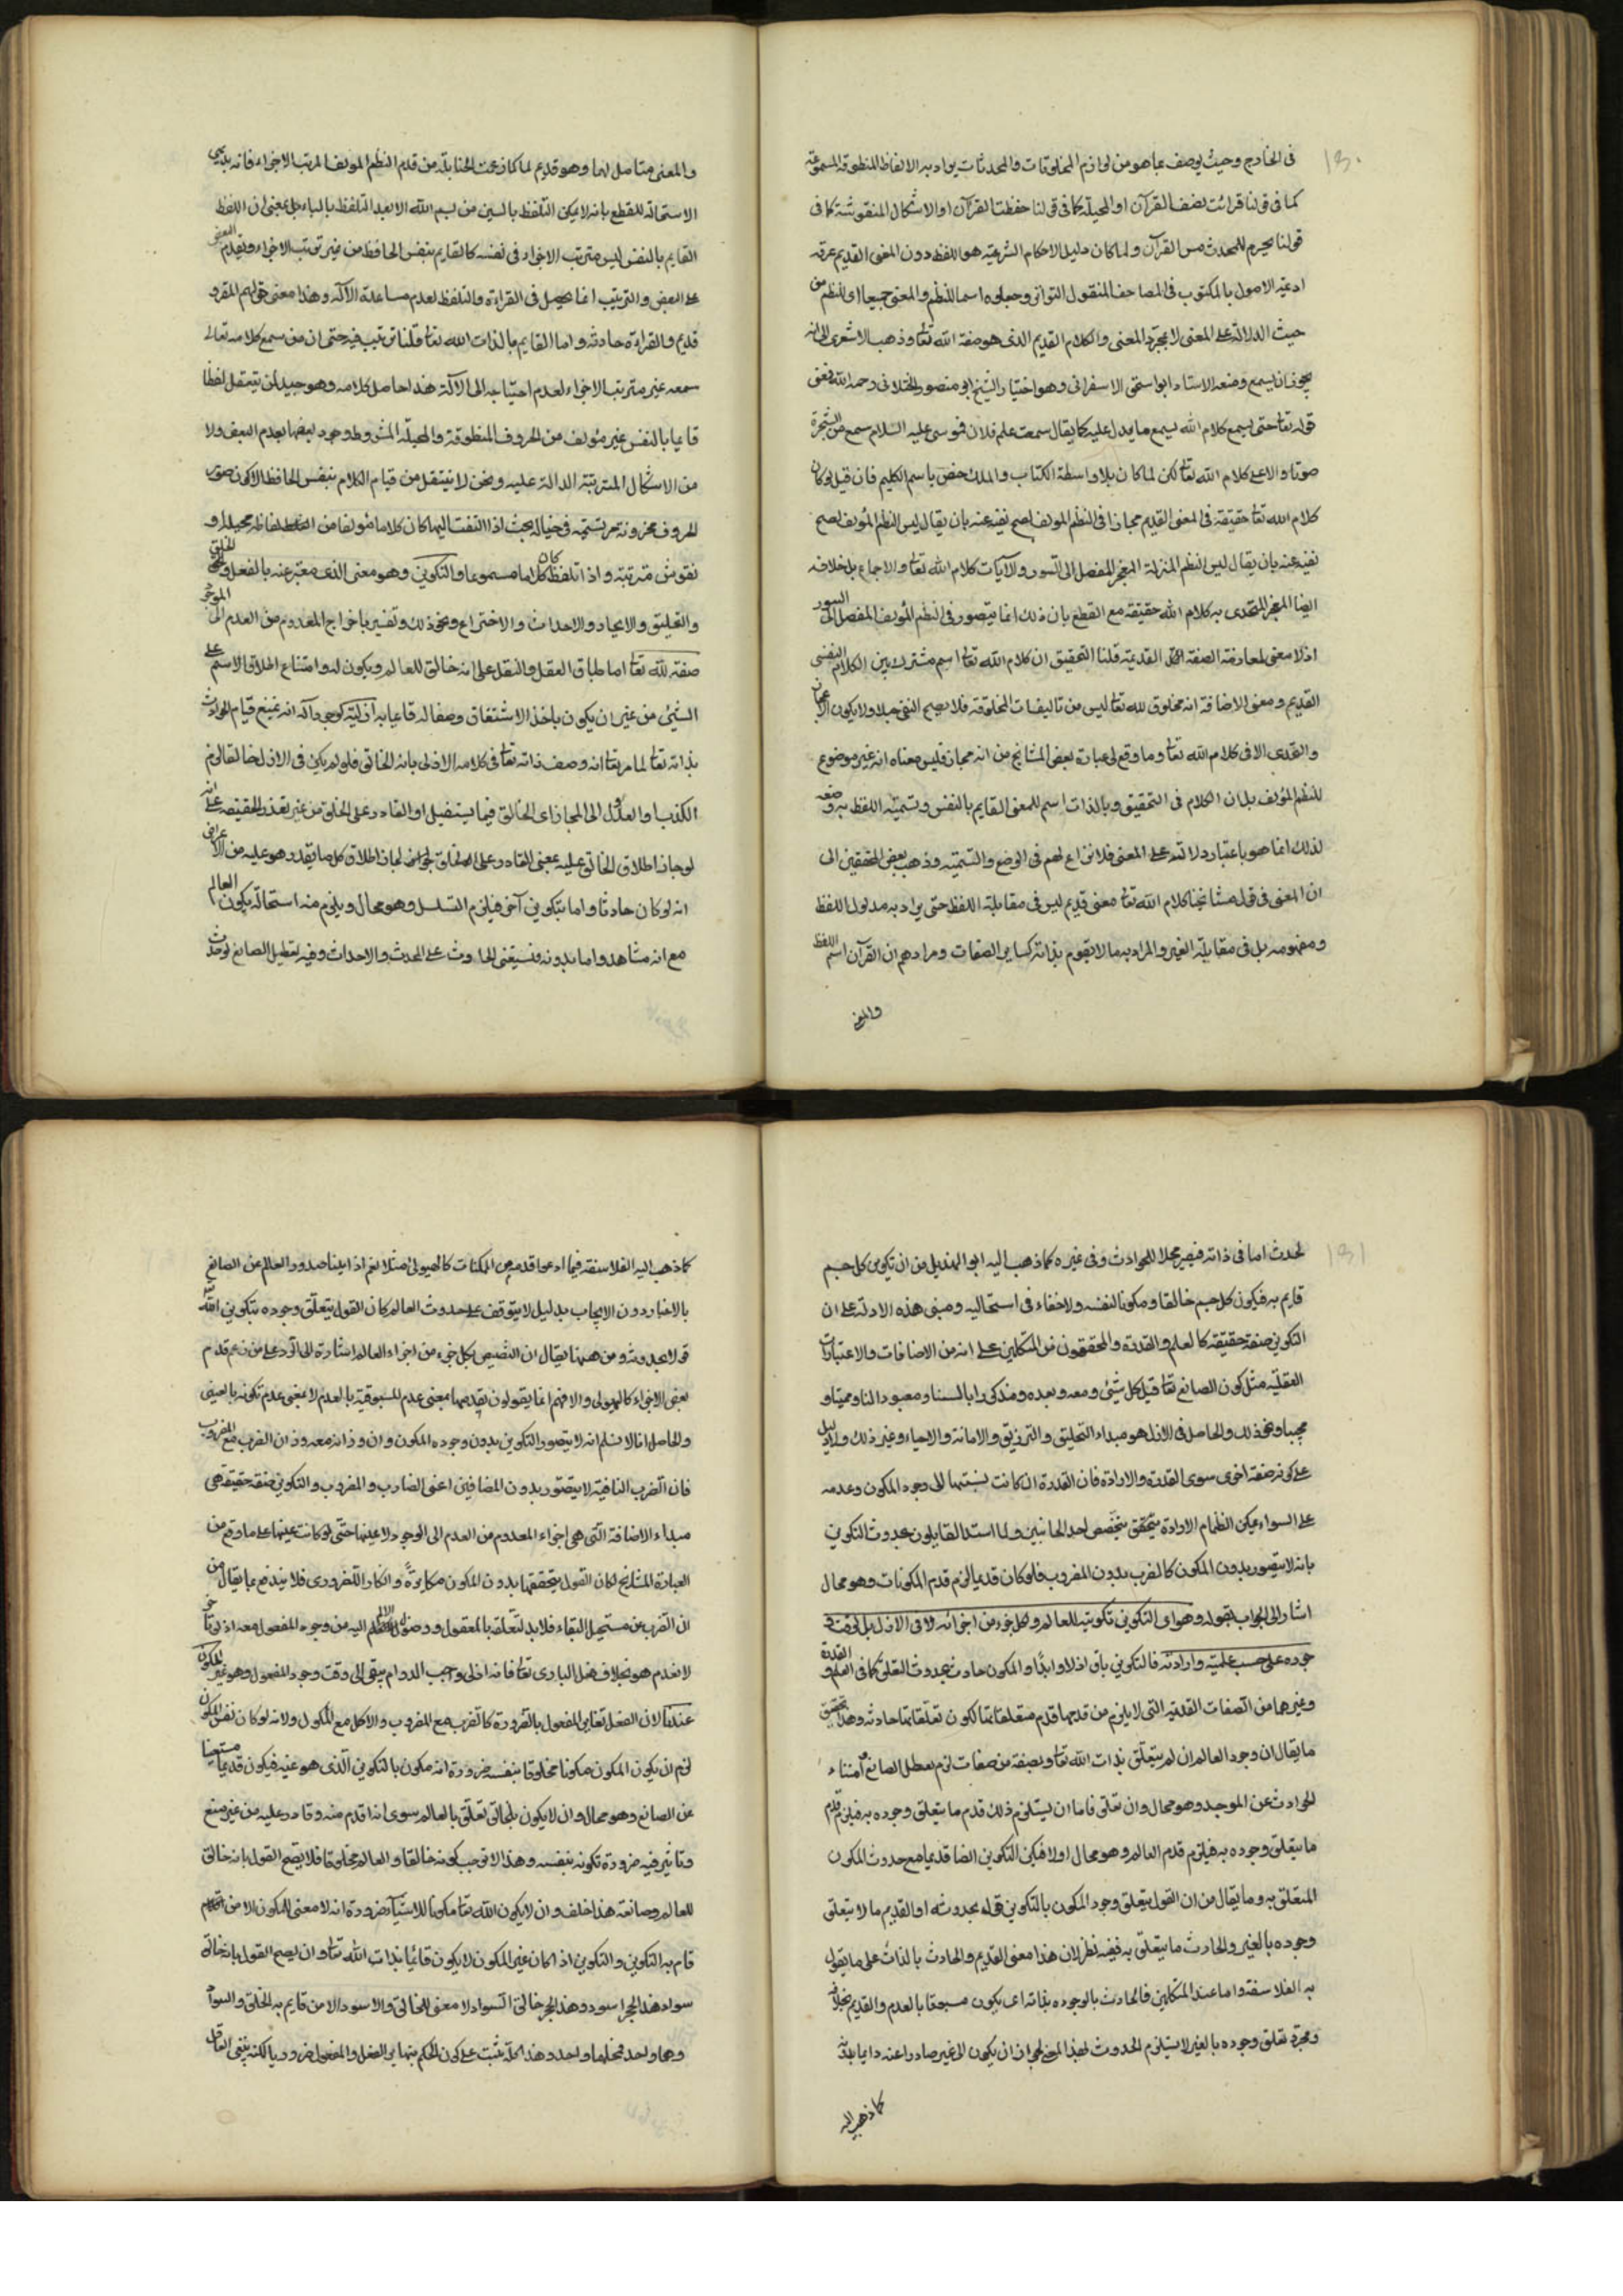 ١٣٠
فى الخارج وحيث يوصف بما هو من لوازم المخلوقات والمحدثات يراد به الالفاظ المنطوقة المسموعة
كما فى قولنا قرائت نصف القرآن او المخيلة كما فى قولنا حفظت القرآن او الاشكال المنقوشة كما فى
قولنا يحرم للمحدث مس القرآن ولما كان دليل الاحكام الشرعية هو اللفظ دون المعنى القديم عرفه
ائمة الاصول بالمكتوب فى المصاحف المنقول بالتواتر وجعلوه اسما للنظم والمعنى جميعا اى للنظم من
حيث الدلالة على المعنى لا بمجرد المعنى والكلام القديم الذى هو صفة الله تعا وذهب الاشعرى الى انه
يجوز ان يسمع ومنعه الاستاد ابو اسحق الاسفرانى وهو اختيار الشيخ ابو منصور رحمه الله فمعنى
قوله تعا حتى يسمع كلام الله يسمع ما يدل عليه كما يقال سمعت علم فلان فموسى عليه السلام سمع من الشجرة
صوتا دالا على كلام الله تعا لكن لما كان بلا واسطة الكتاب والملك خص باسم الكليم فان قيل لو كان
كلام الله تعا حقيقة فى المعنى القديم مجازا فى النظم المولف لصح نفيه عنه بان يقال ليس النظم المؤلف لصح
نفيه عنه بان يقال ليس النظم المنزلة المعجز المفصل الى السور والآيات كلام الله تعا والاجماع بل خلافه
ايضا المعجز المتحدى به كلام الله حقيقة مع القطع بان ذلك انما يتصور فى النظم المؤلف المفصل الى السور
اذ لا معنى لمعارضة الصفة القديمة قلنا التحقيق ان كلام الله تعا اسم مشترك بين الكلام النفسى
القديم ومعنى الاضافة انه مخلوق لله تعا ليس من تاليفات المخلوقة فلا يصح النفى اصلا ولا يكون الاعجاز
والتحدى الا فى كلام الله تعا وما وقع فى عبارة بعض المشايخ من انه مجاز فليس معناه انه غير موضوع
للنظم المؤلف بل ان الكلام فى التحقيق وبالذات اسم للمعنى القايم بالنفس وتسمية اللفظ به وضعه
لذلك انما هو باعتبار دلالته على المعنى فلا نزاع لهم فى الوضع والتسمية وذهب بعض المحققين الى
ان المعنى فى قول مشايخنا كلام الله تعا معنى قديم ليس فى مقابلة اللفظ حتى يراد به مدلول اللفظ
ومفهومه بل فى مقابلة الغير والمراد به ما لا يقوم بذاته كساير الصفات ومرادهم ان القرآن اسم اللفظ
والمعنى
والمعنى متاصل لهما وهو قديم لما كما زعمت الحنابلة من قدم النظم المولف المرتب الاجزاء فانه بديهى
الاستحالة للقطع بانه لا يمكن التلفظ بالسين من بسم الله الا بعد التلفظ بالباء بل بمعنى ان اللفظ
القايم بالنفس ليس مترتب الاجزاء فى نفسه كالقايم بنفس الحافظ من غير ترتب الاجزاء وتقدم البعض
على البعض والترتيب انما يحصل فى القراءة والتلفظ لعدم مساعدة الآلة وهذا معنى قولهم المقرو
قديم والقراءة حادثة واما القايم بالذات الله تعا قلنا ترتب فيه حتى ان من سمع كلامه تعالى
سمعه غير مترتب الاجزاء لعدم احتياجه الى الآلة هذا حاصل كلامه وهو جيد لمن يتعقل لفظا
قايما بالنفس غير مؤلف من الحروف المنطوقة والمخيلة المشروط وجود بعضها بعدم البعض ولا
من الاشكال المترتبة الدالة عليه ونحن لا نتعقل من قيام الكلام بنفس الحافظ الا كون صور
الحروف مخزونة مرتسمة فى خياله بحيث اذا التفت اليها كان كلاما مؤلفا من الفاظ مخيلة او
نقوش مترتبة واذا تلفظ كان كلاما مسموعا والتكوين وهو معنى الذى معبر عنه بالفعل والخلق
والتخليق والايجاد والاحداث والاختراع ونحو ذلك وتفسير باخراج المعدوم من العدم الى الوجود
صفة لله تعا اما طباق العقل والنقل على انه خالق للعالم ومكون له وامتناع اطلاق الاسم على
الشىء من غير ان يكون ماخذ الاشتقاق وصفا له قايما به ازلية كوجوه آله انه يمتنع قيام الحوادث
بذاته تعا لما مر تعا انه وصف ذاته تعا فى كلامه الازلى بانه الخالق فلو لم يكن فى الازل خالقا لزم
الكذب او العدول الى المجاز اى الخالق فيما يستقبل او القادر على الخلق من غير تعذر الحقيقة على انه
لو جاز اطلاق الخالق عليه بمعنى القادر على الخلق لجاز اطلاق كل ما يقدر هو عليه من الاعراض
انه لو كان حادثا واما بتكوين آخر فيلزم التسلسل وهو محال ويلزم منه استحالة تكون العالم
مع انه مشاهد واما بدونه فيستغنى الحادث على المحدث والاحداث وفيه تعطيل الصانع لو حدث
١٣١
لحدث اما فى ذاته فيصير محلا للحوادث وفى غيره كما ذهب اليه ابو الهذيل من ان تكوين كل جسم
قايم به فيكون كل جسم خالقا ومكونا لنفسه ولا خفاء فى استحاليه ومبنى هذه الادلة على ان
التكوين صفة حقيقة كالعلم والقدرة والمحققون من المتكلمين على انه من الاضافات والاعتبارات
العقلية مثل كون الصانع تعا قبل كل شىء ومعه وبعده ومذكورا بالسنا ومعبود النا ومميتا و
محييا ونحو ذلك والحاصل فى الازل هو مبداء التخليق والترزيق والاماتة والاحياء وغير ذلك ولا دليل
على كونه صفة اخرى سوى القدرة والارادة فان القدرة ان كانت نسبتها الى وجود المكون وعدمه
على السواء يمكن انظمام الارادة يتحقق يتخصص احد الجانبين ولما استدل القايلون بحدوث التكوين
بانه لا يتصور بدون المكون كالضرب بدون المضروب فلو كان قديما لزم قدم المكونات وهو محال
اشار الى الجواب بقوله وهو اى التكوين تكوينه للعالم وكل جزء من اجزائه لا فى الازل بل لوقت
وجوده على حسب علمه وارادته فالتكوين باق ازلا وابدا والمكون حادث بحدوث التعلق كما فى العلم والقدرة
وغيرهما من الصفات القديمة التى لا يلزم من قدمها قدم متعلقاتها لكون تعلقاتها حادثة وهذا تحقيق
ما يقال ان وجود العالم ان لم يتعلق بذات الله تعا وبصفة من صفات لزم تعطل الصانع
الحوادث عن الموجد وهو محال وان تعلق فاما ان يستلزم ذلك قدم ما يتعلق وجوده به فيلزم قدم
ما يتعلق وجوده به فيلزم قدم العالم وهو محال اولا فيكن التكوين ايضا قديما مع حدوث المكون
المتعلق به وما يقال من ان القول بتعلق وجود المكون بالتكوين قول بحدوثه او القديم ما لا يتعلق
وجوده بالغير والحادث ما يتعلق به ففيه نظر لان هذا معنى القديم والحادث بالذات على ما يقول
به الفلاسفة واما عند المتكلمين فالحادث بالوجوده بذاته اى يكون مسبوقا بالعدم والقديم بخلافه
ومجرد تعلق وجوده بالغير لا يستلزم الحدوث لهذا المعنى لجواز ان يكون الى غير صادرا عنه دايما
كما ذهب اليه
كما ذهب اليه الفلاسفة فيما ادعوا قدمه من الممكنات كالهيولى مثلا نعم اذا اثبتنا صدور العالم عن الصانع
بالاختيار دون الايجاب بدليل لا يتوقف على حدوث العالم كان القول بتعلق وجوده بتكوين الله
قولا بحدوثه ومن ههنا يقال ان التنصيص كل جزء من اجزاء العالم اشارة الى الرد على من زعم قدم
بعض الاجزاء كالهيولى والا فهم انما يقولون بقدمهما بمعنى عدم المسبوقية بالعدم لا بمعنى عدم تكونه بالغير
والحاصل انا لا نسلم انه لا يتصور التكوين بدون وجوده المكون وان وزانه معه وزان الضرب مع المضروب
فان الضرب لا يتصور بدون المضافين اعنى الضارب والمضروب والتكوين صفة حقيقة هى
مبداء الاضافة التى هى اخراء المعدوم من العدم الى الوجود لا عينها حتى لو كانت عينها على ما وقع من
العبارة المشايخ لكان القول بتحققها بدون المكون مكابرة وانكارا للضرورى فلا يندفع بما يقال من
ان الضرب عرض مستحيل البقاء فلا بد لتعلقه بالمفعول ووصول الالم اليه من وجود المفعول معه اذ لو تاخر
لانعدم هو بخلاف فعل البارى تعا فانه ازلى واجب الدوام يبقى الى وقت وجود المفعول وهو غير المكون
عندنا لان الفعل تغاير المفعول بالضرورة كالضرب مع المضروب والاكل مع المأكول ولانه لو كان نفس المكون
لزم ان يكون المكون مكونا مخلوقا بنفسه ضرورة انه مكون بالتكوين الذى هو عينه فيكون قديما مستغنيا
عن الصانع وهو محال وان لا يكون للخالق تعلق بالعالم سوى انه اقدم منه وقادر عليه من غير صنع
وتاثير فيه ضرورة تكونه بنفسه وهذا لا توجب كونه خالقا والعالم مخلوقا فلا يصح القول بانه خالق
للعالم وصانعه هذا خلف وان لا يكون الله تعا مكونا للاشياء ضرورة انه لا معنى للمكون الا من
قام به التكوين والتكوين اذا كان عين المكون لا يكون قائما بذات الله تعا وان يصح القول بانه خالق
سواد هذا الحجر اسود وهذا الحجر خالق السواد لا معنى للخالق والاسود الا من قايم به الخلق والسواد
وهما واحد فمحلهما واحد وهذا كله تنبيه على كون الحكم بتغاير الفعل والمفعول ضروريا لكنه ينبغى للعاقل